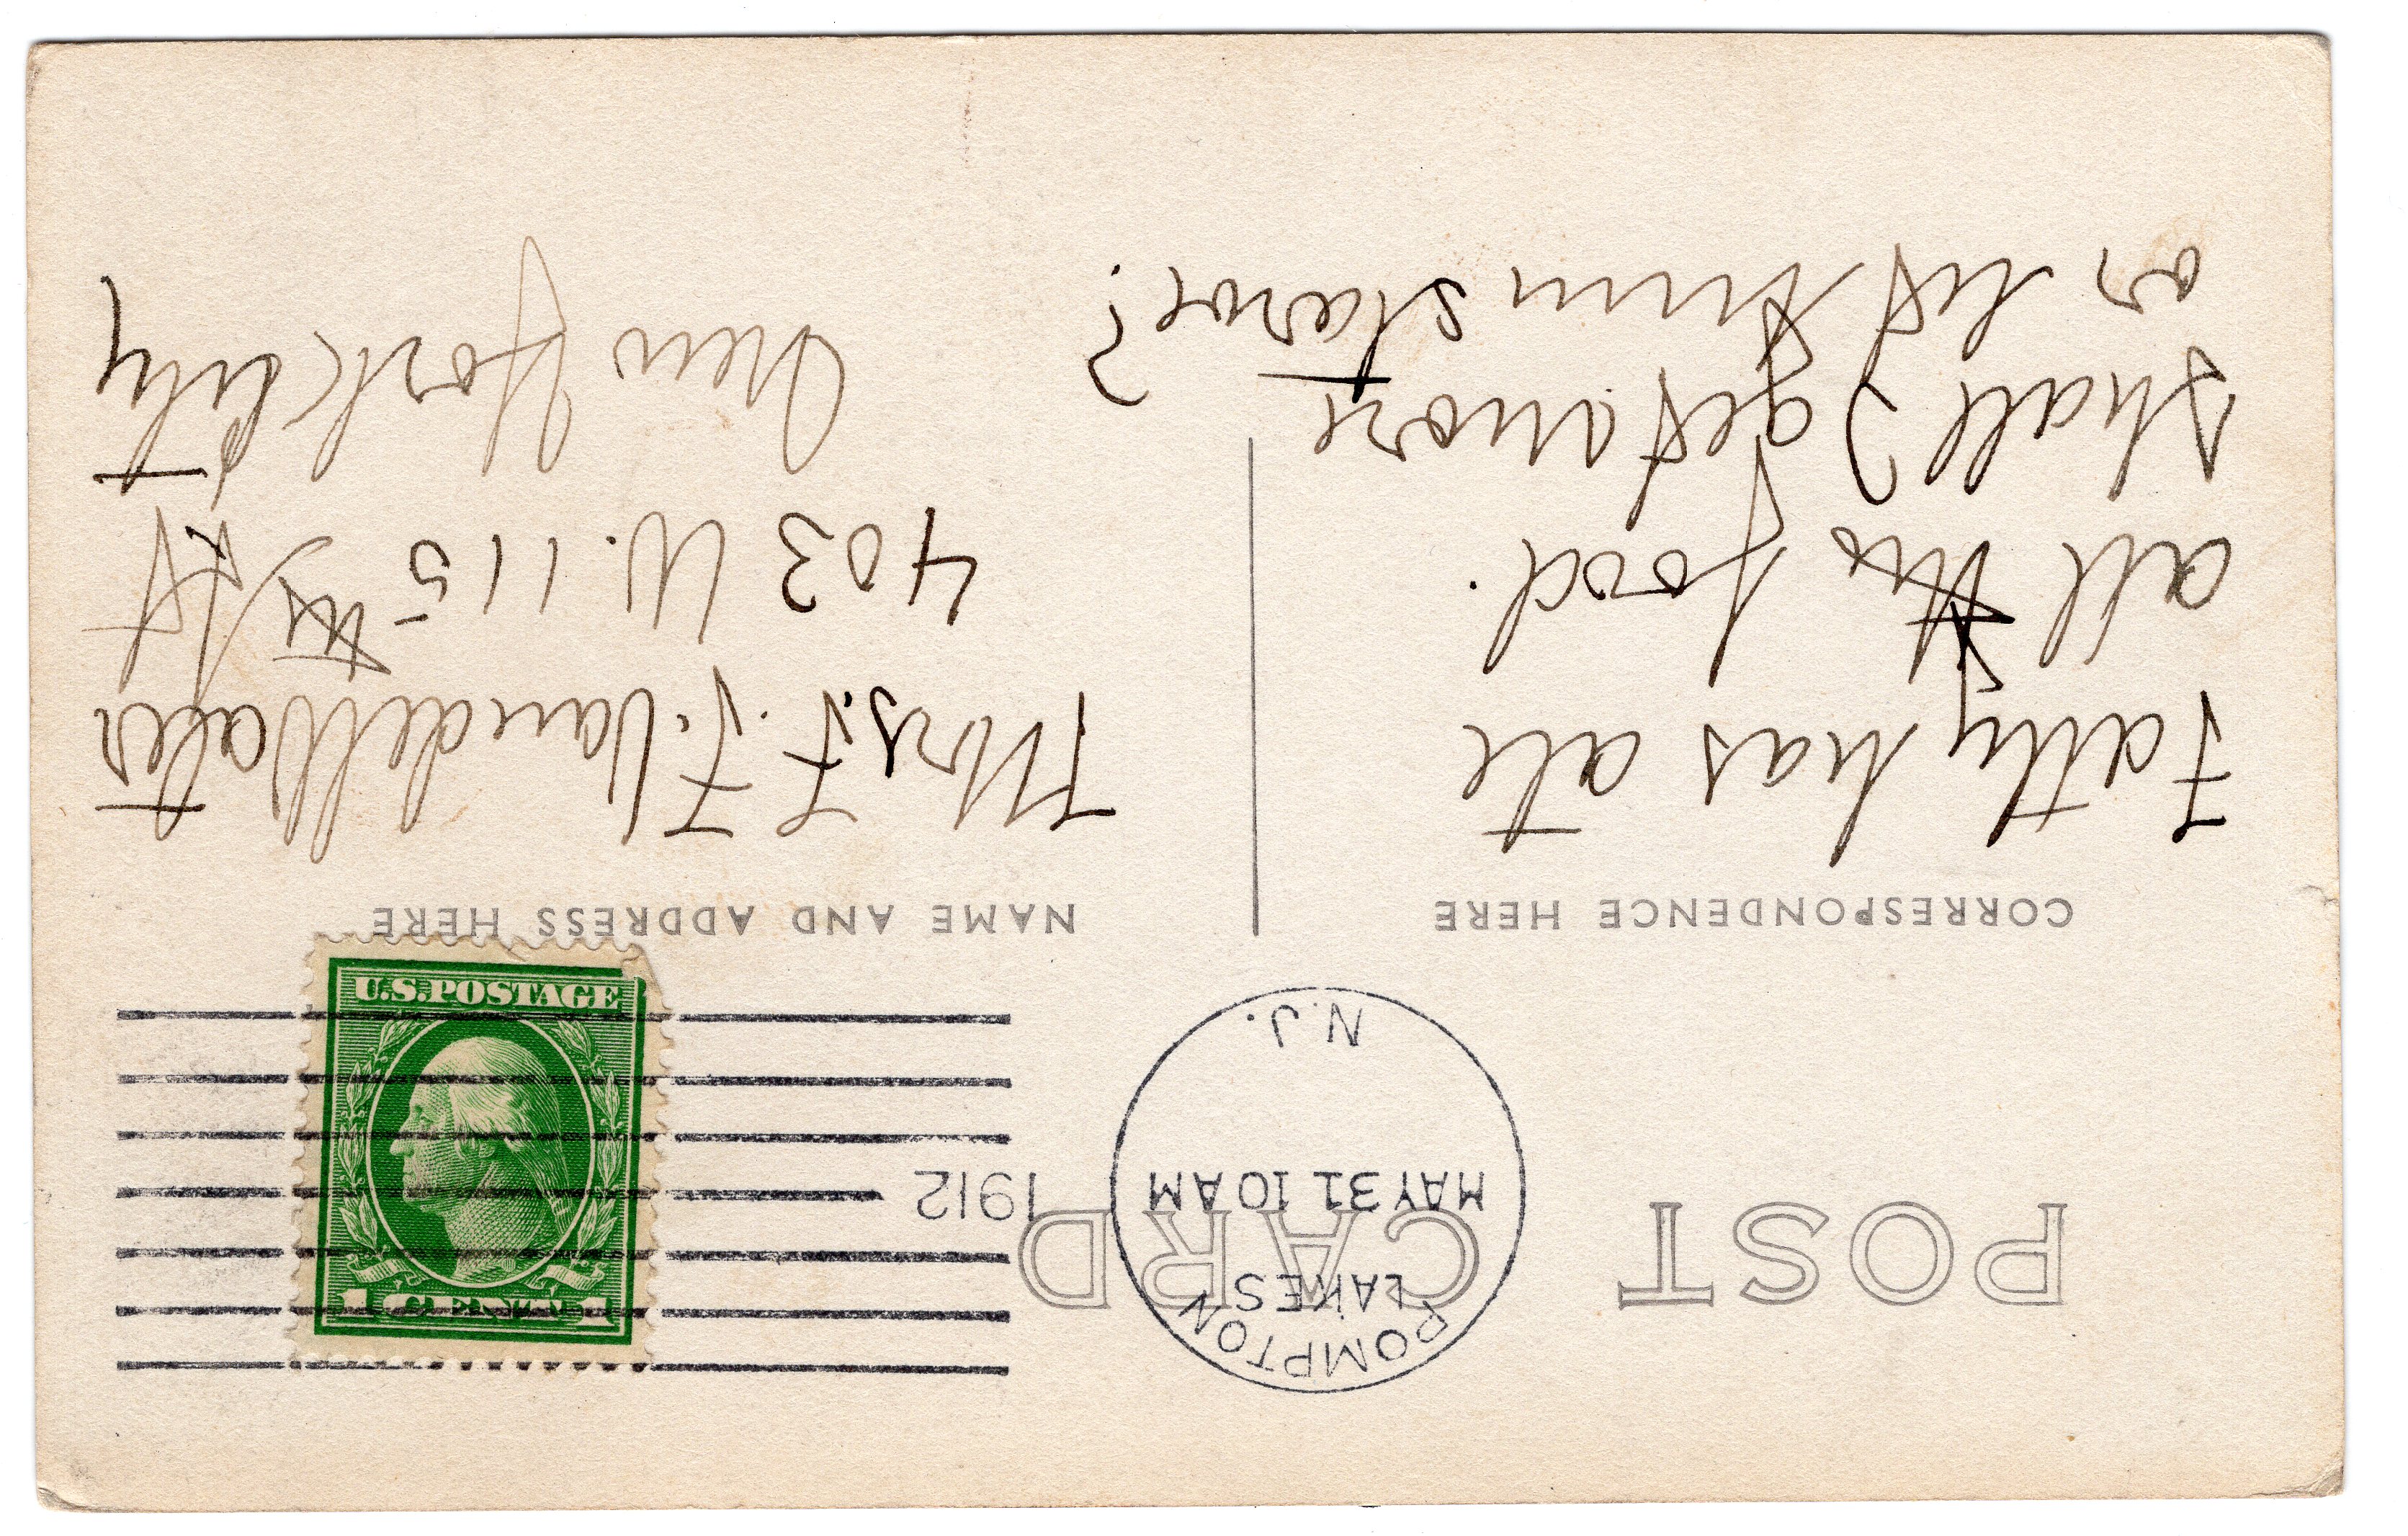 POST CARD
POMPTON
LAKES
MAY 31 10 AM
N.J.
1912
1 CENT 1
U.S. POSTAGE
CORRESPONDENCE HERE
Fatty has ate
all the food.
Shall I get more
or let him starve?
NAME AND ADDRESS HERE
Mrs. F. F. VandeWater
403 W. 115 th St
New York City